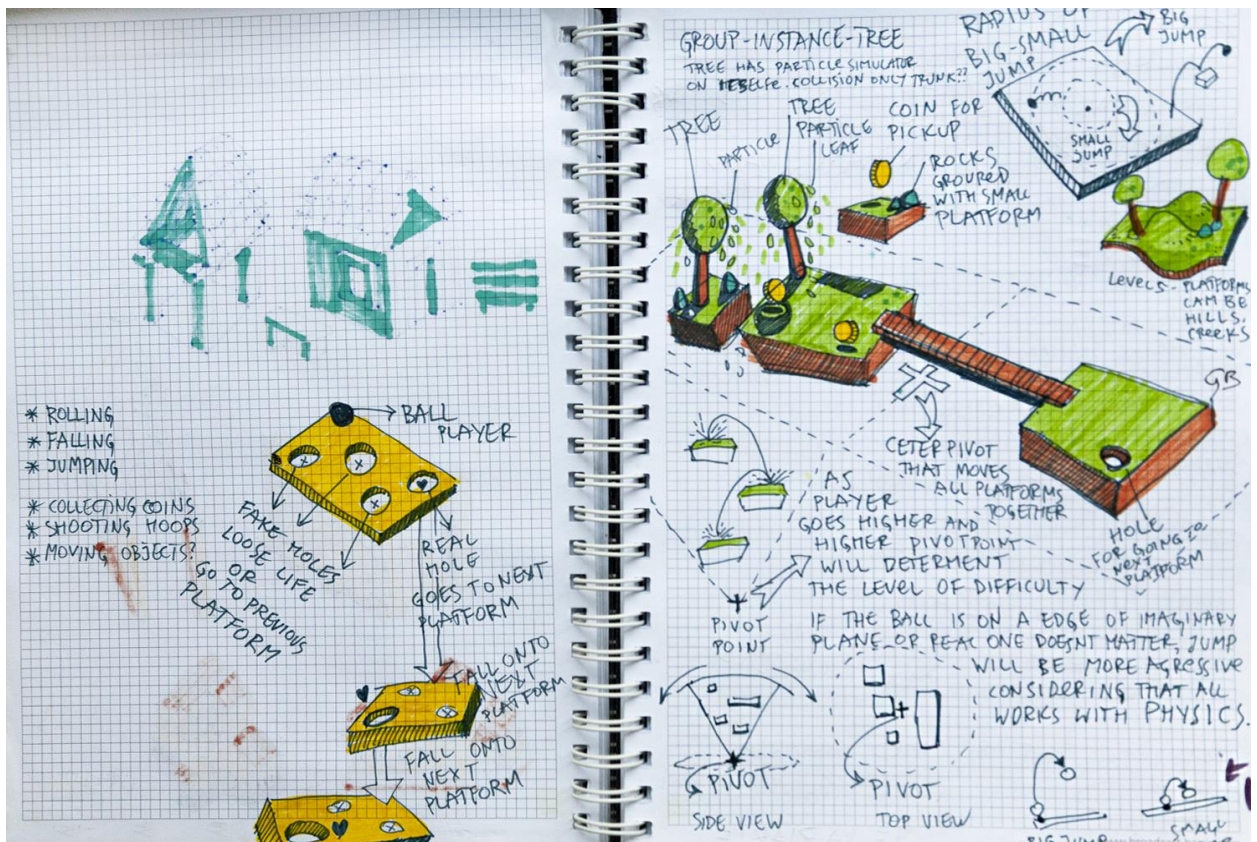 * ROLLING
* FALLING
* JUMPING
* COLLECTING COINS
* SHOOTING HOOPS
* MOVING OBJECTS?
BALL
PLAYER
FAKE HOLES
LOOSE LIFE
OR
GO TO PREVIOUS
PLATFORM
REAL
HOLE
GOES TO NEXT
PLATFORM
FALL ONTO
NEXT
PLATFORM
FALL ONTO
NEXT
PLATFORM
GROUP-INSTANCE-TREE
TREE HAS PARTICLE SIMULATOR
ON ITESELFE. COLLISION ONLY TRUNK??
RADIUS OF
BIG-SMALL
JUMP
BIG
JUMP
SMALL
JUMP
TREE
PARTICLE
TREE
PARTICLE
LEAF
COIN FOR
PICKUP
ROCKS
GROUPED
WITH SMALL
PLATFORM
LEVELS - PLATFORMS
CAM BE
HILLS,
CREEKS
GB
CETER PIVOT
THAT MOVES
ALL PLATFORMS
TOGETHER
HOLE
FOR GOING TO
NEXT
PLATFORM
AS
PLAYER
GOES HIGHER AND
HIGHER PIVOTPOINT
WILL DETERMENT
THE LEVEL OF DIFFICULTY
PIVOT
POINT
IF THE BALL IS ON A EDGE OF IMAGINARY
PLANE OR REAL ONE DOESNT MATTER, JUMP
WILL BE MORE AGRESSIVE
CONSIDERING THAT ALL
WORKS WITH PHYSICS.
PIVOT
SIDE VIEW
PIVOT
TOP VIEW
BIG JUMP
SMALL